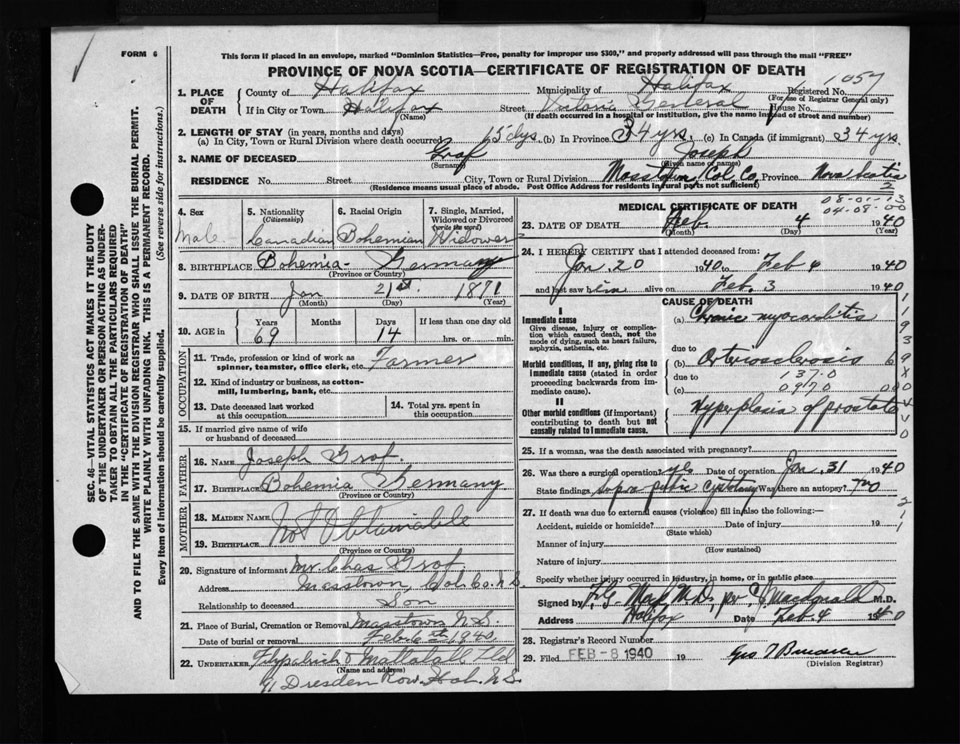 FORM 6
This form if placed in an envelope, marked "Dominion Statistics—Free, penalty for improper use $300," and properly addressed will pass through the mail "FREE"
PROVINCE OF NOVA SCOTIA—CERTIFICATE OF REGISTRATION OF DEATH
1057
1. PLACE OF DEATH County of Halifax Municipality of Halifax Registered No.
(For use of Registrar General only)
If in City or Town Halifax Street Victoria General House No.
(Name) (If death occurred in a hospital or institution, give the name instead of street and number)
2. LENGTH OF STAY (in years, months and days)
(a) In City, Town or Rural Division where death occurred 15 dys. (b) In Province 34 yrs. (c) In Canada (if immigrant) 34 yrs.
3. NAME OF DECEASED Graf Joseph
(Surname) (Given name or names)
RESIDENCE No. Street City, Town or Rural Division Masstown, Col. Co. Province Nova Scotia
(Residence means usual place of abode. Post Office Address for residents in rural parts not sufficient)
2
SEC. 46—VITAL STATISTICS ACT MAKES IT THE DUTY
OF THE UNDERTAKER OR PERSON ACTING AS UNDER-
TAKER TO OBTAIN ALL THE PARTICULARS REQUIRED
IN THE "CERTIFICATE OF REGISTRATION OF DEATH"
AND TO FILE THE SAME WITH THE DIVISION REGISTRAR WHO SHALL ISSUE THE BURIAL PERMIT.
WRITE PLAINLY WITH UNFADING INK. THIS IS A PERMANENT RECORD.
Every item of information should be carefully supplied. (See reverse side for instructions.)
4. Sex Male
5. Nationality (Citizenship) Canadian
6. Racial Origin Bohemian
7. Single, Married, Widowed or Divorced (write the word) Widower
8. BIRTHPLACE Bohemia - Germany
(Province or Country)
9. DATE OF BIRTH Jan 21st. 1871
(Month) (Day) (Year)
10. AGE in Years 69 Months Days 14 If less than one day hrs. or min.
OCCUPATION
11. Trade, profession or kind of work as spinner, teamster, office clerk, etc. Farmer
12. Kind of industry or business, as cotton-mill, lumbering, bank, etc.
13. Date deceased last worked at this occupation
14. Total yrs. spent in this occupation
15. If married give name of wife or husband of deceased
FATHER
16. Name Joseph Graf.
17. Birthplace Bohemia Germany
(Province or Country)
MOTHER
18. Maiden Name Not Obtainable
19. Birthplace
(Province or Country)
20. Signature of informant Mr. Chas Graf
Address Masstown, Col. Co. N.S.
Relationship to deceased Son
21. Place of Burial, Cremation or Removal Masstown N.S.
Date of burial or removal Feb. 6th 1940
22. UNDERTAKER
(Name and address)
91 Dresden Row. N.S.
MEDICAL CERTIFICATE OF DEATH
08-01-13
04-08-00
23. DATE OF DEATH Feb. 4 1940
(Month) (Day) (Year)
24. I HEREBY CERTIFY that I attended deceased from:
Jan. 20 1940 to Feb 4 1940
and last saw him alive on Feb. 3 1940
CAUSE OF DEATH
I
Immediate cause
Give disease, injury or complication which caused death, not the mode of dying, such as heart failure, asphyxia, asthenia, etc.
(a) Chronic myocarditis
due to
Morbid conditions, if any, giving rise to immediate cause (stated in order proceeding backwards from immediate cause).
(b) Arteriosclerosis
due to 137-0
(c) 097-0
II
Other morbid conditions (if important) contributing to death but not causally related to immediate cause.
Hyperplasia of prostate
25. If a woman, was the death associated with pregnancy?
26. Was there a surgical operation? yes Date of operation Jan. 31 1940
State findings supra pubic Was there an autopsy? no
27. If death was due to external causes (violence) fill in also the following:—
Accident, suicide or homicide? Date of injury 19
(State which)
Manner of injury
(How sustained)
Nature of injury
Specify whether injury occurred in industry, in home, or in public place
Signed by F.G. Mack M.D., per MacDonald M.D.
Address Halifax Date Feb. 4 1940
28. Registrar's Record Number
29. Filed FEB - 8 1940 19
(Division Registrar)